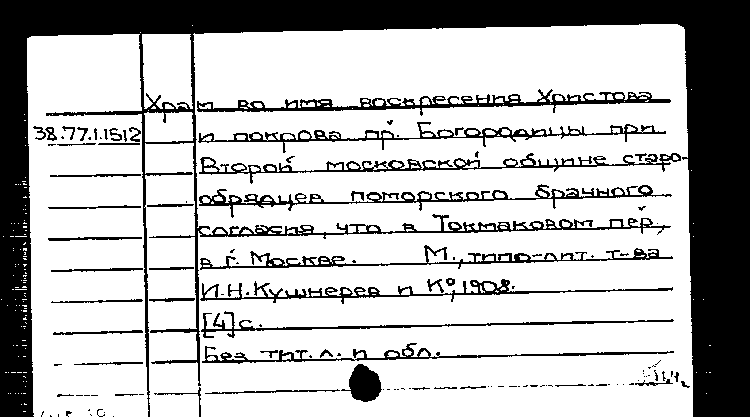 Храм во имя воскресения Христова
38.77.1.1512 и покрова пр. Богородицы при
Второй московской общине старо-
обрядцев поморского брачного
согласия, что в Токмаковом пер.,
в г. Москве. М., типо-лит. т-ва
И.Н.Кушнерев и К°, 1908.
[4]с.
Без тит. л. и обл.